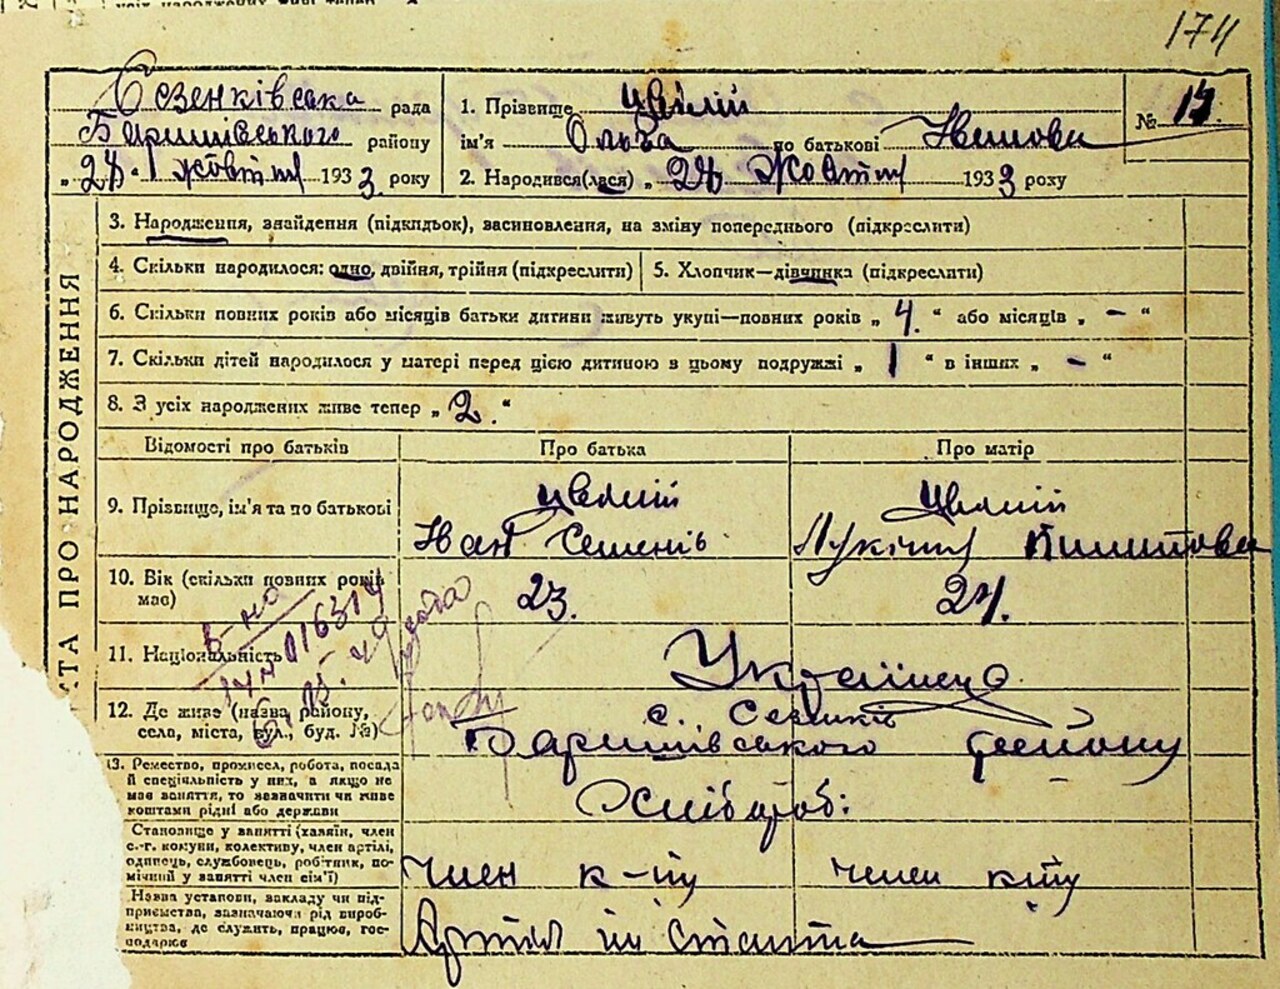 174
Сезенківська рада
Баришівського району
„ 28 “ жовтня 1933. року
1. Прізвище Цвілій
ім'я Ольга по батькові Іванова
2. Народився(лася) „ 28 Жовтня 1933 року
№ 17.
АКТА ПРО НАРОДЖЕННЯ
3. Народження, знайдення (підкидьок), засиновлення, на зміну попереднього (підкреслити)
4. Скільки народилося: одно, двійня, трійня (підкреслити)
5. Хлопчик—дівчинка (підкреслити)
6. Скільки повних років або місяців батьки дитини живуть укупі—повних років „ 4. “ або місяців „ - “
7. Скільки дітей народилося у матері перед цією дитиною в цьому подружжі „ 1 “ в інших „ - “
8. З усіх народжених живе тепер „ 2. “
Відомості про батьків Про батька Про матір
9. Прізвище, ім'я та по батькові
Цвілій
Іван Семенів
Цвілій
Лукія
10. Вік (скільки повних років
має)
23.
24.
11. Національність
Українець
12. Де живе (назва району,
села, міста, вул., буд. №)
с. Сезенків
Баришівського району
13. Ремество, промисел, робота, посада
й спеціяльність у них, а якщо не
має заняття, то зазначити чи живе
коштами рідні або держави
Хлібороб:
Становище у занятті (хазяїн, член
с.-г. комуни, колективу, член артілі,
одинець, службовець, робітник, по-
мічний у занятті член сім'ї)
член к-пу член к-пу
Назва установи, закладу чи під-
приємства, зазначаючи рід вироб-
ництва, де служить, працює, гос-
подарює
Артіл ім Сталіна